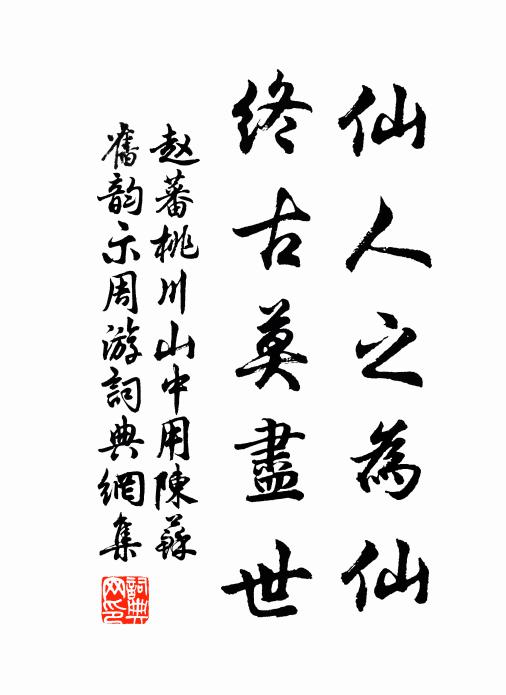 仙人之為仙
終古莫盡世
赵蕃桃川山中用陳蘇
舊韵示周游詞典網集
詞典網印